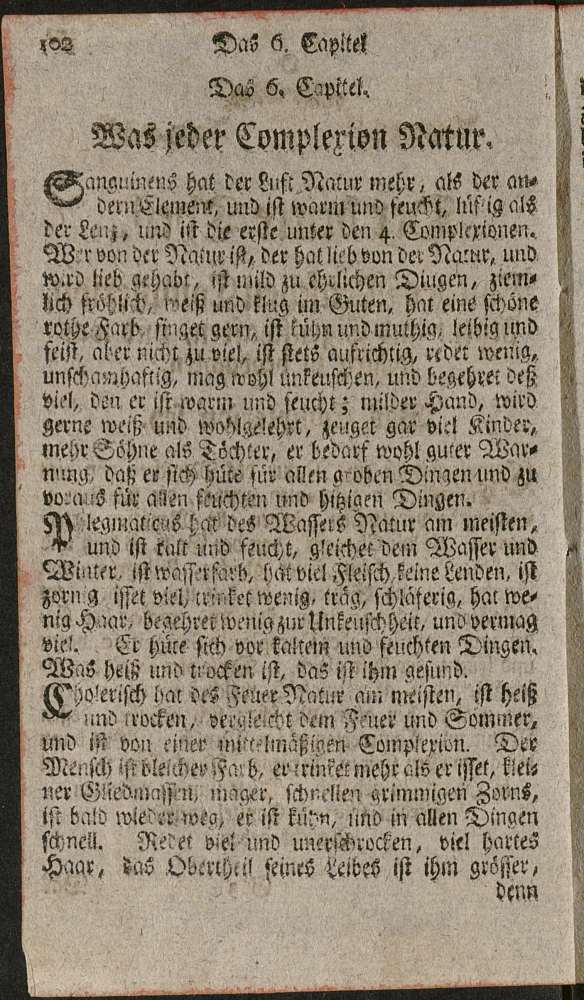 102 Das 6. Capitel
Das 6. Capitel.
Was jeder Complexion Natur.
Sanguineus hat der Luft Natur mehr, als der an-
dern Element, und ist warm und feucht, lüftig als
der Lenz, und ist die erste unter den 4. Complexionen.
Wer von der Natur ist, der hat lieb von der Natur, und
wird lieb gehabt, ist mild zu ehrlichen Dingen, ziem-
lich fröhlich, weiß und klug im Guten, hat eine schöne
rothe Farb, singet gern, ist kühn und muthig, leibig und
feist, aber nicht zu viel, ist stets aufrichtig, redet wenig,
unschamhaftig, mag wohl unkeuschen, und begehret deß
viel, den er ist warm und feucht; milder Hand, wird
gerne weiß und wohlgelehrt, zeuget gar viel Kinder,
mehr Söhne als Töchter, er bedarf wohl guter War-
nung, daß er sich hüte für allen groben Dingen und zu
voraus für allen feuchten und hitzigen Dingen.
Plegmaticus hat des Wassers Natur am meisten,
und ist kalt und feucht, gleichet dem Wasser und
Winter, ist wasserfarb, hat viel Fleisch, keine Lenden, ist
zornig isset viel, trinket wenig, träg, schläferig, hat we-
nig Haar, begehret wenig zur Unkeuschheit, und vermag
viel. Er hüte sich vor kaltem und feuchten Dingen.
Was heiß und trocken ist, das ist ihm gesund.
Cholerisch hat des Feuer Natur am meisten, ist heiß
und trocken, vergleicht dem Feuer und Sommer,
und ist von einer mittelmäßigen Complexion. Der
Mensch ist bleicher Farb, er trinket mehr als er isset, klei-
ner Gliedmassen, mager, schnellen grimmigen Zorns,
ist bald wieder weg, er ist kühn, und in allen Dingen
schnell. Redet viel und unerschrocken, viel hartes
Haar, das Obertheil seines Leibes ist ihm grösser,
denn